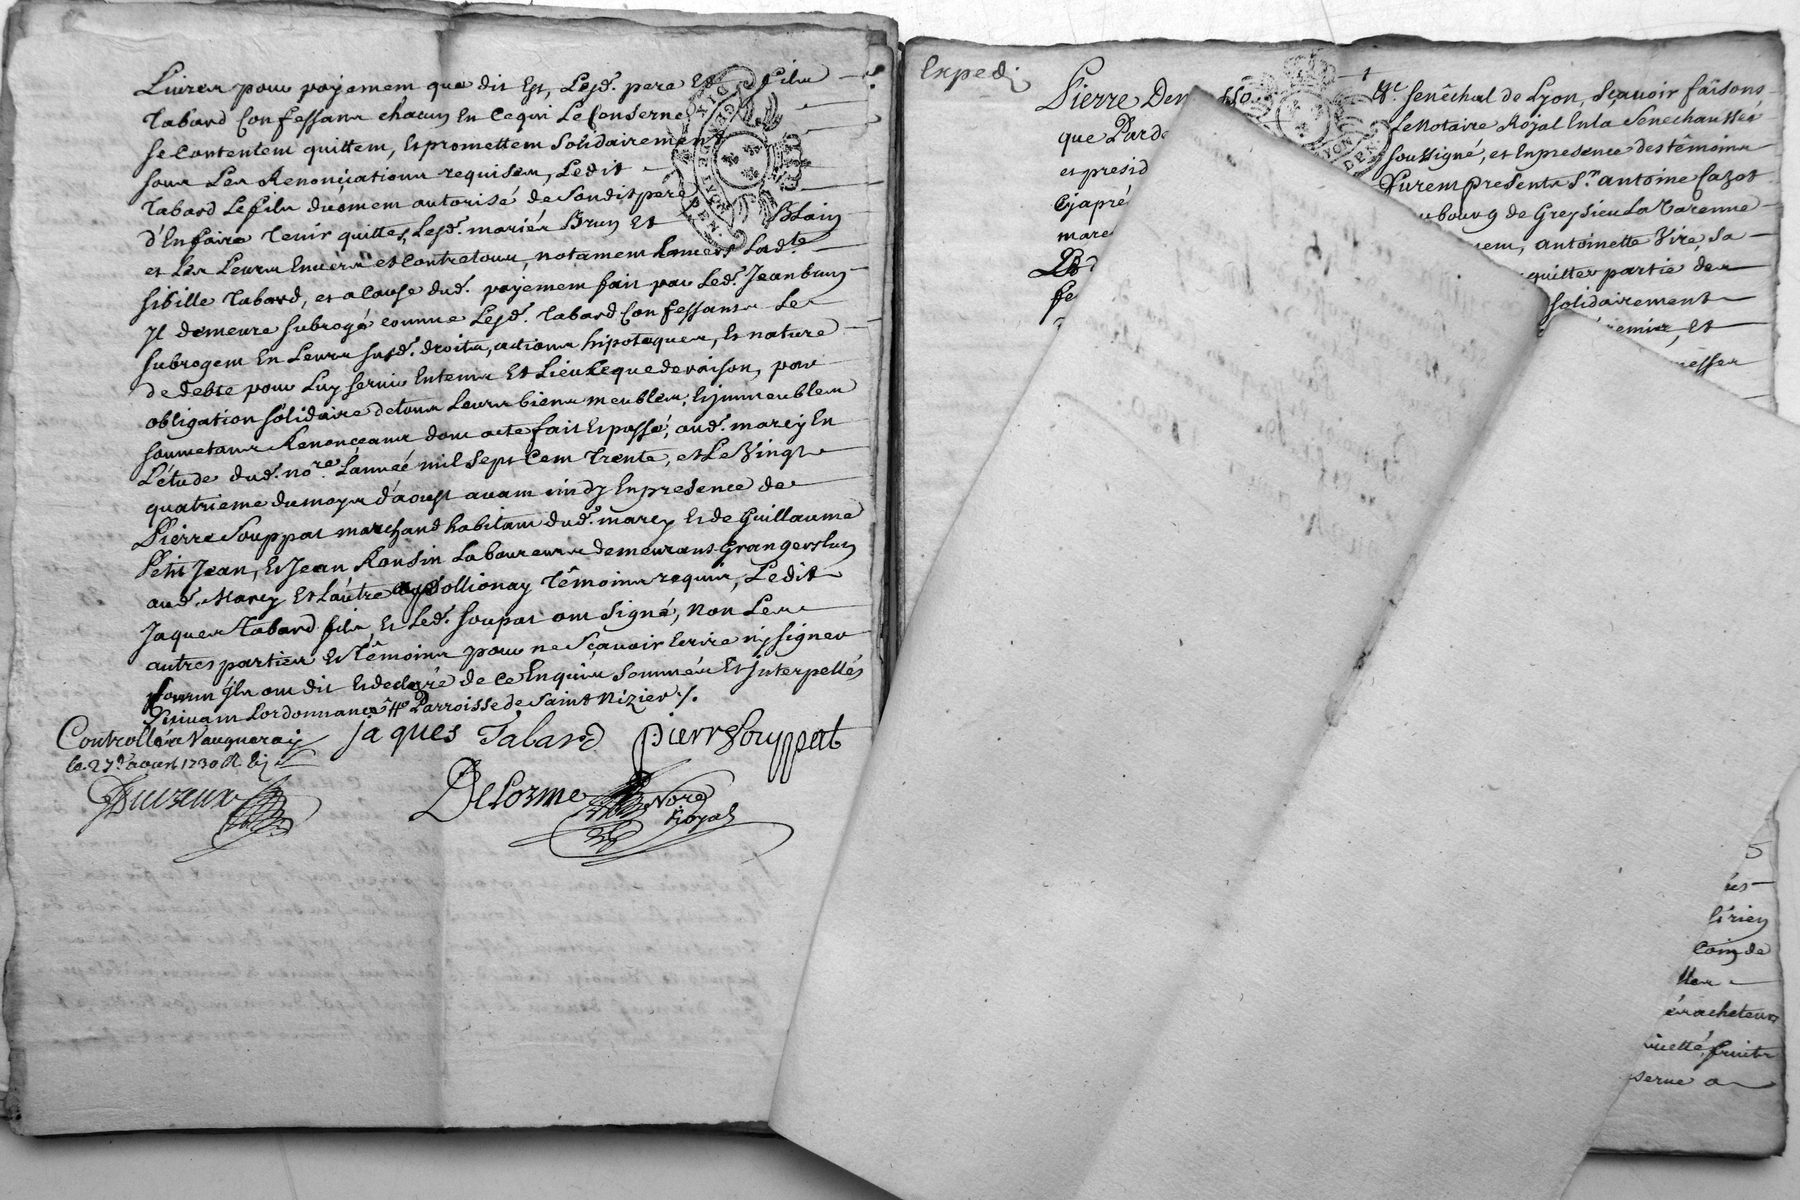 Livres pour payement que dit Est, Lesd. pere Et fils
Tabard Confessans chacun En ce qui Le Conserne
se Contentent quittent, Et promettent Solidairement
sous Les Renonciations requises, Ledit
Tabard Le fils dument autorisé de Sondit pere
d'En faire Tenir quittes, Lesd. mariés Brun Et Blain
et Les Leurs Envers et contre tous, notament Envers Ladte
sibille Tabard, et a Cause dud. payement fait par Led. Jean brun
Il demeure subrogé comme Lesd. Tabard Confessans Le
subrogent En Leurs susd. droits, actions hipoteques, Et nature
de debte pour Luy servir En tems Et Lieu Ce que de raison, par
obligation solidaire de tous Leurs biens meubles, Et immeubles
soumetans Renonceans dont acte fait Et passé, aud. marcy En
L'étude dud. nore. L'année mil sept Cent Trente, et Le Vingt
quatrieme du moys d'aoust avant midy En presence de
Pierre Souppat marchand habitant dud. marcy Et de Guillaume
Petit Jean, Et Jean Ronsin Laboureurs demeurans Grangers L'un
aud. Marcy Et L'autre a Pollionay Têmoins requis, Ledit
Jaques Tabard fils, Et Led. Soupat ont signé, Non Les
autres parties Et Têmoins pour ne Sçavoir Ecrire ny signer
Comm' ils ont dit Et declaré de ce Enquis Sommés Et Interpellés
Suivant L'ordonnance # Parroisse de Saint Nizier ./.
Controllé a Vaugneray
le 27e. aoust 1730
jaques Tabard
pierre Souppat
Delorme
Nore
Royal
Expedi
Pierre
que Pard
et presid
Cy apré
mare
Et. Senêchal de Lyon, Sçavoir faisons
Le Notaire Royal En la Senechaussée
soussigné, et En presence des têmoins
Furent presents Sr. antoine Cazot
bourg de Greysieu La Varenne
antoinette Vire, Sa
quitter partie des
solidairement
et
éracheteurs
fruits
serve a